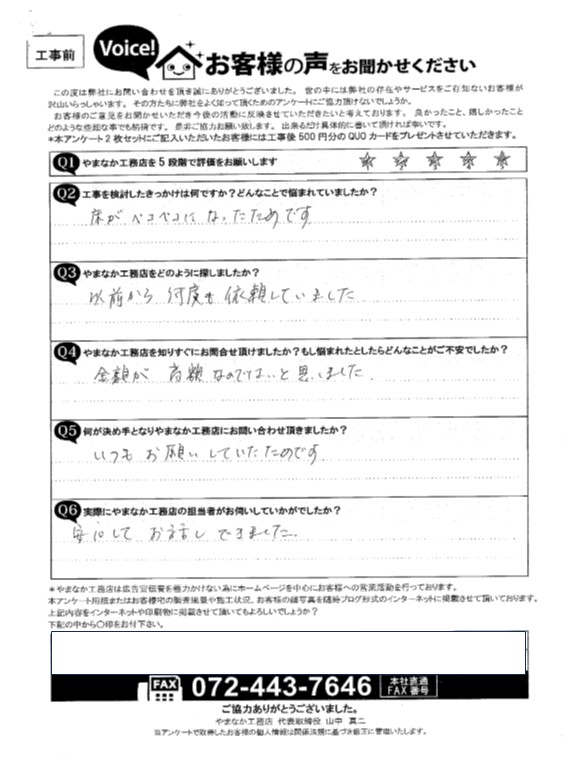 工事前
Voice!
お客様の声をお聞かせください
この度は弊社にお問い合わせを頂き誠にありがとうございました。 世の中には弊社の存在やサービスをご存知ないお客様が
沢山いらっしゃいます。 その方たちに弊社をよく知って頂くためのアンケートにご協力頂けないでしょうか。
お客様のご意見をお聞かせいただき今後の活動に反映させていただきたいと考えております。 良かったこと、嬉しかったこと
どのような些細な事でも結構です。 是非ご協力お願い致します。 出来るだけ具体的に書いて頂ければ幸いです。
*本アンケート2枚セットにご記入いただいたお客様には工事後500円分のQUOカードをプレゼントさせていただきます。
Q1 やまなか工務店を5段階で評価をお願いします ☆ ☆ ☆ ☆ ☆
Q2 工事を検討したきっかけは何ですか?どんなことで悩まれていましたか?
床がペコペコになったためです
Q3 やまなか工務店をどのように探しましたか?
以前から何度も依頼していました
Q4 やまなか工務店を知りすぐにお問合せ頂けましたか?もし悩まれたとしたらどんなことがご不安でしたか?
金額が高額なのではないと思いました。
Q5 何が決め手となりやまなか工務店にお問い合わせ頂きましたか?
いつもお願いしていたのです
Q6 実際にやまなか工務店の担当者がお伺いしていかがでしたか?
安心してお話しできました。
*やまなか工務店は広告宣伝費を極力かけない為にホームページを中心にお客様への営業活動を行っております。
本アンケート用紙またはお客様宅の製書風景や施工状況、お客様の顔写真を随時ブログ形式のインターネットに掲載させて頂いております。
上記内容をインターネットや印刷物に掲載させて頂いてもよろしいでしょうか?
下記の中から〇印をお付下さい。
FAX 072-443-7646 本社直通
FAX番号
ご協力ありがとうございました。
やまなか工務店 代表取締役 山中 真二
当アンケートで取得したお客様の個人情報は関係法規に基づき厳正に管理いたします。